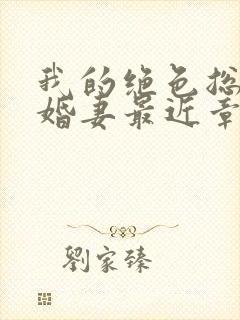 我的绝色总
婚妻最近章
劉家臻